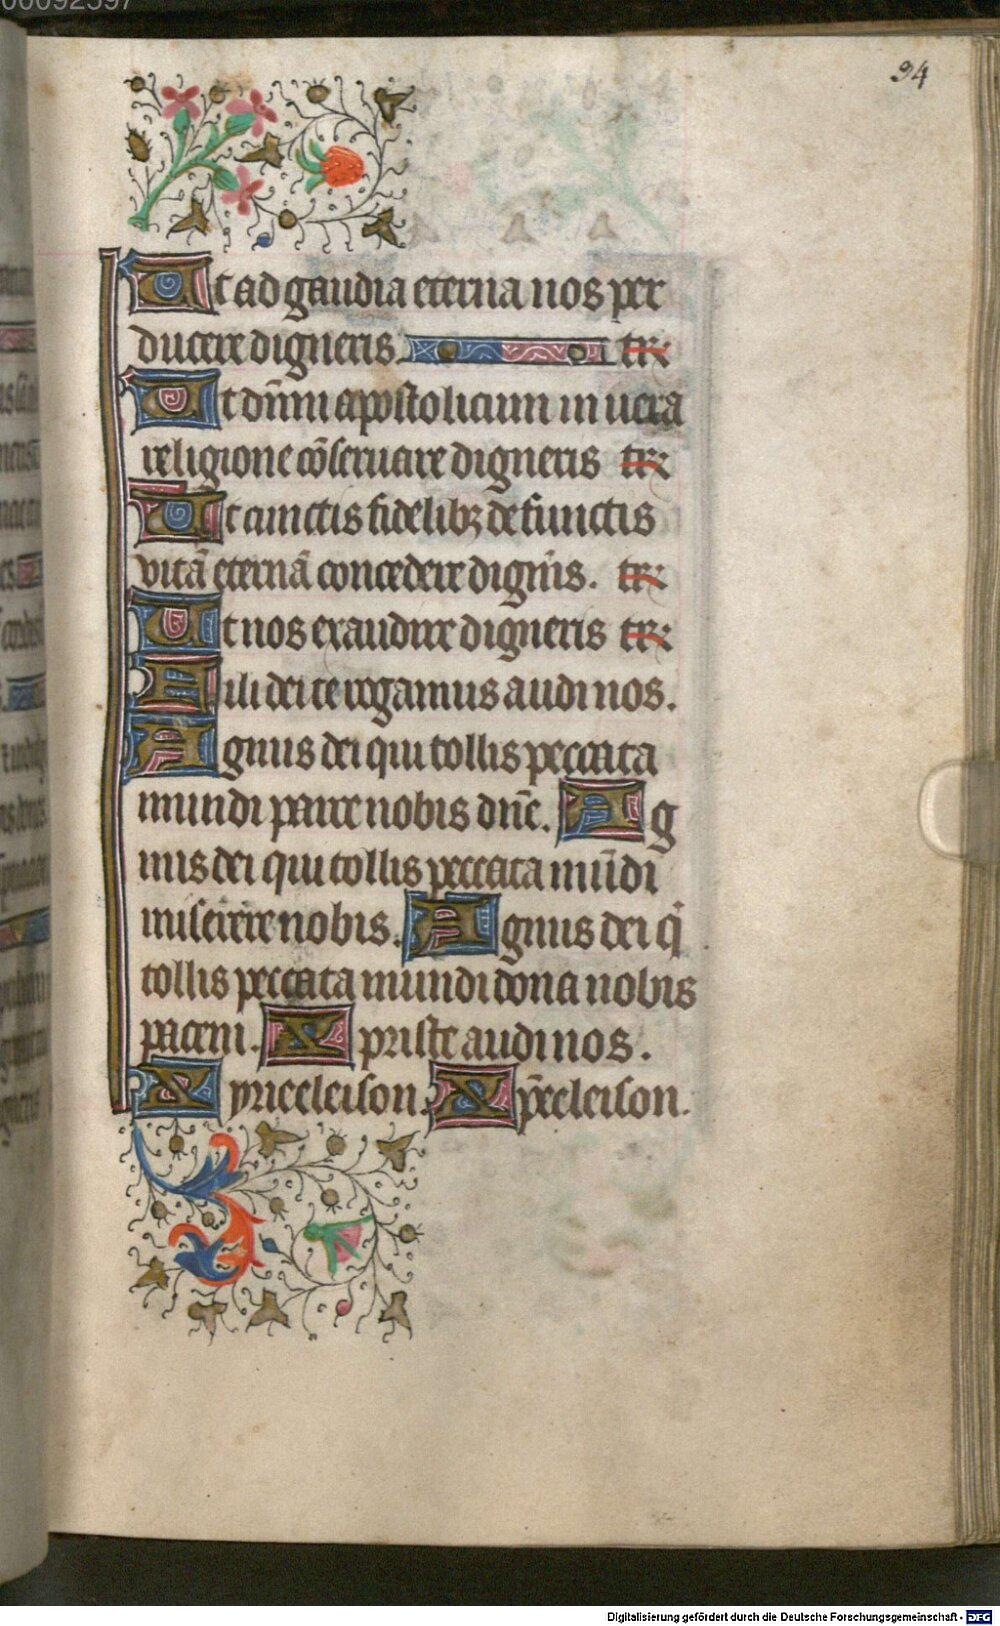 00092597
94
Ut ad gaudia eterna nos per
ducere digneris tr̄
Ut dn̄m apostolicum in uera
religione cōseruare digneris tr̄
Ut cunctis fidelibꝫ defunctis
vitā eternā concedere dignis. tr̄
Ut nos exaudire digneris tr̄
Fili dei te rogamus audi nos.
Agnus dei qui tollis peccata
mundi parce nobis dn̄e. Ag
nus dei qui tollis peccata mūdi
miserere nobis. Agnus dei qi
tollis peccata mundi dona nobis
pacem. Xpriste audi nos.
Kyrieeleison. Xp̄eeleison.
Digitalisierung gefördert durch die Deutsche Forschungsgemeinschaft - DFG